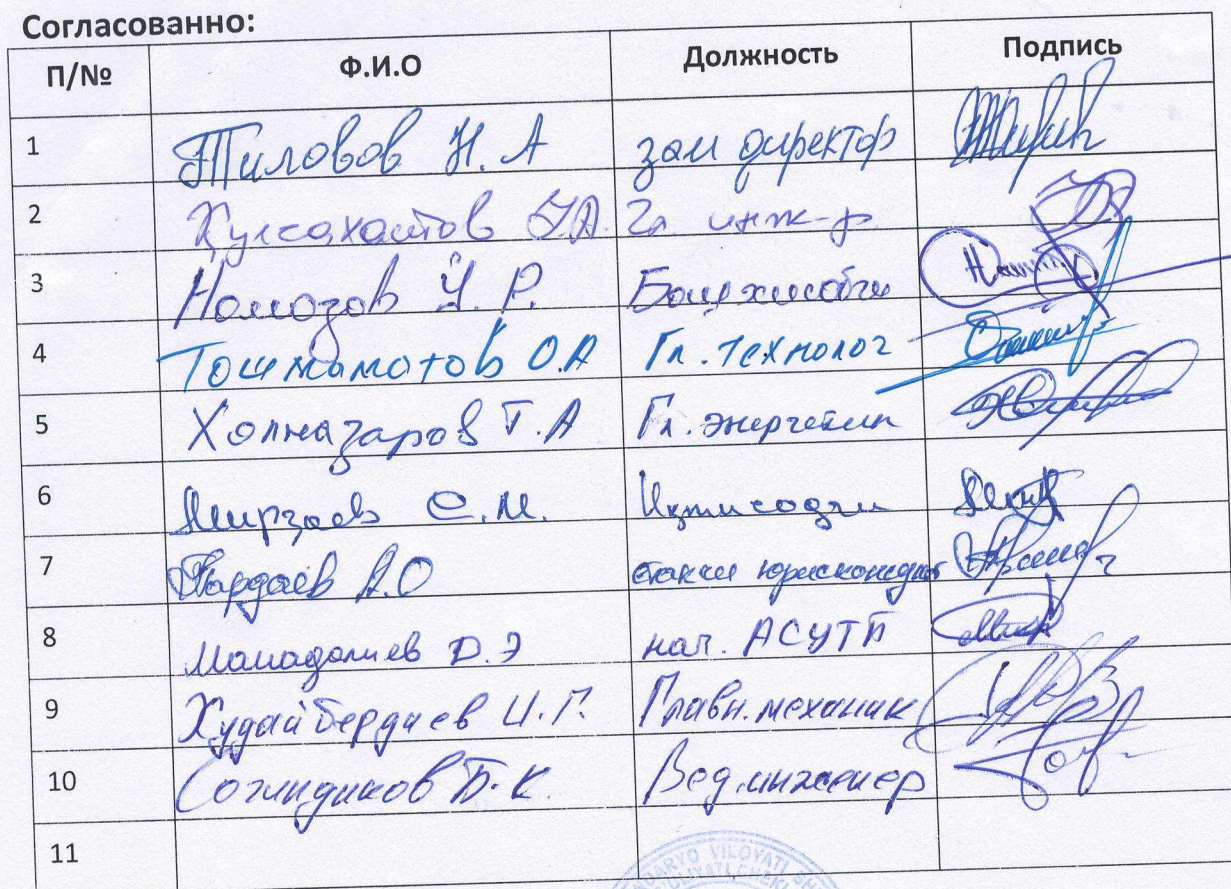 Согласованно:
П/№ Ф.И.О Должность Подпись
1 Тиловов Н.А зам директор
2 Гл. инж-р
3 Номозов У.Р. Бошхисобчи
4 Тошмаматов О.А Гл. технолог
5 Холназаров Т.А Гл. энергетик
6 Мирзаев С.М. Иқтисодчи
7 Пардаев А.О етакчи юрисконсульт
8 Мамадалиев D.Э нач. АСУТП
9 Худайбердиев И.Г. Главн. механик
10 Б.К. Вед. инженер
11
VILOYATI